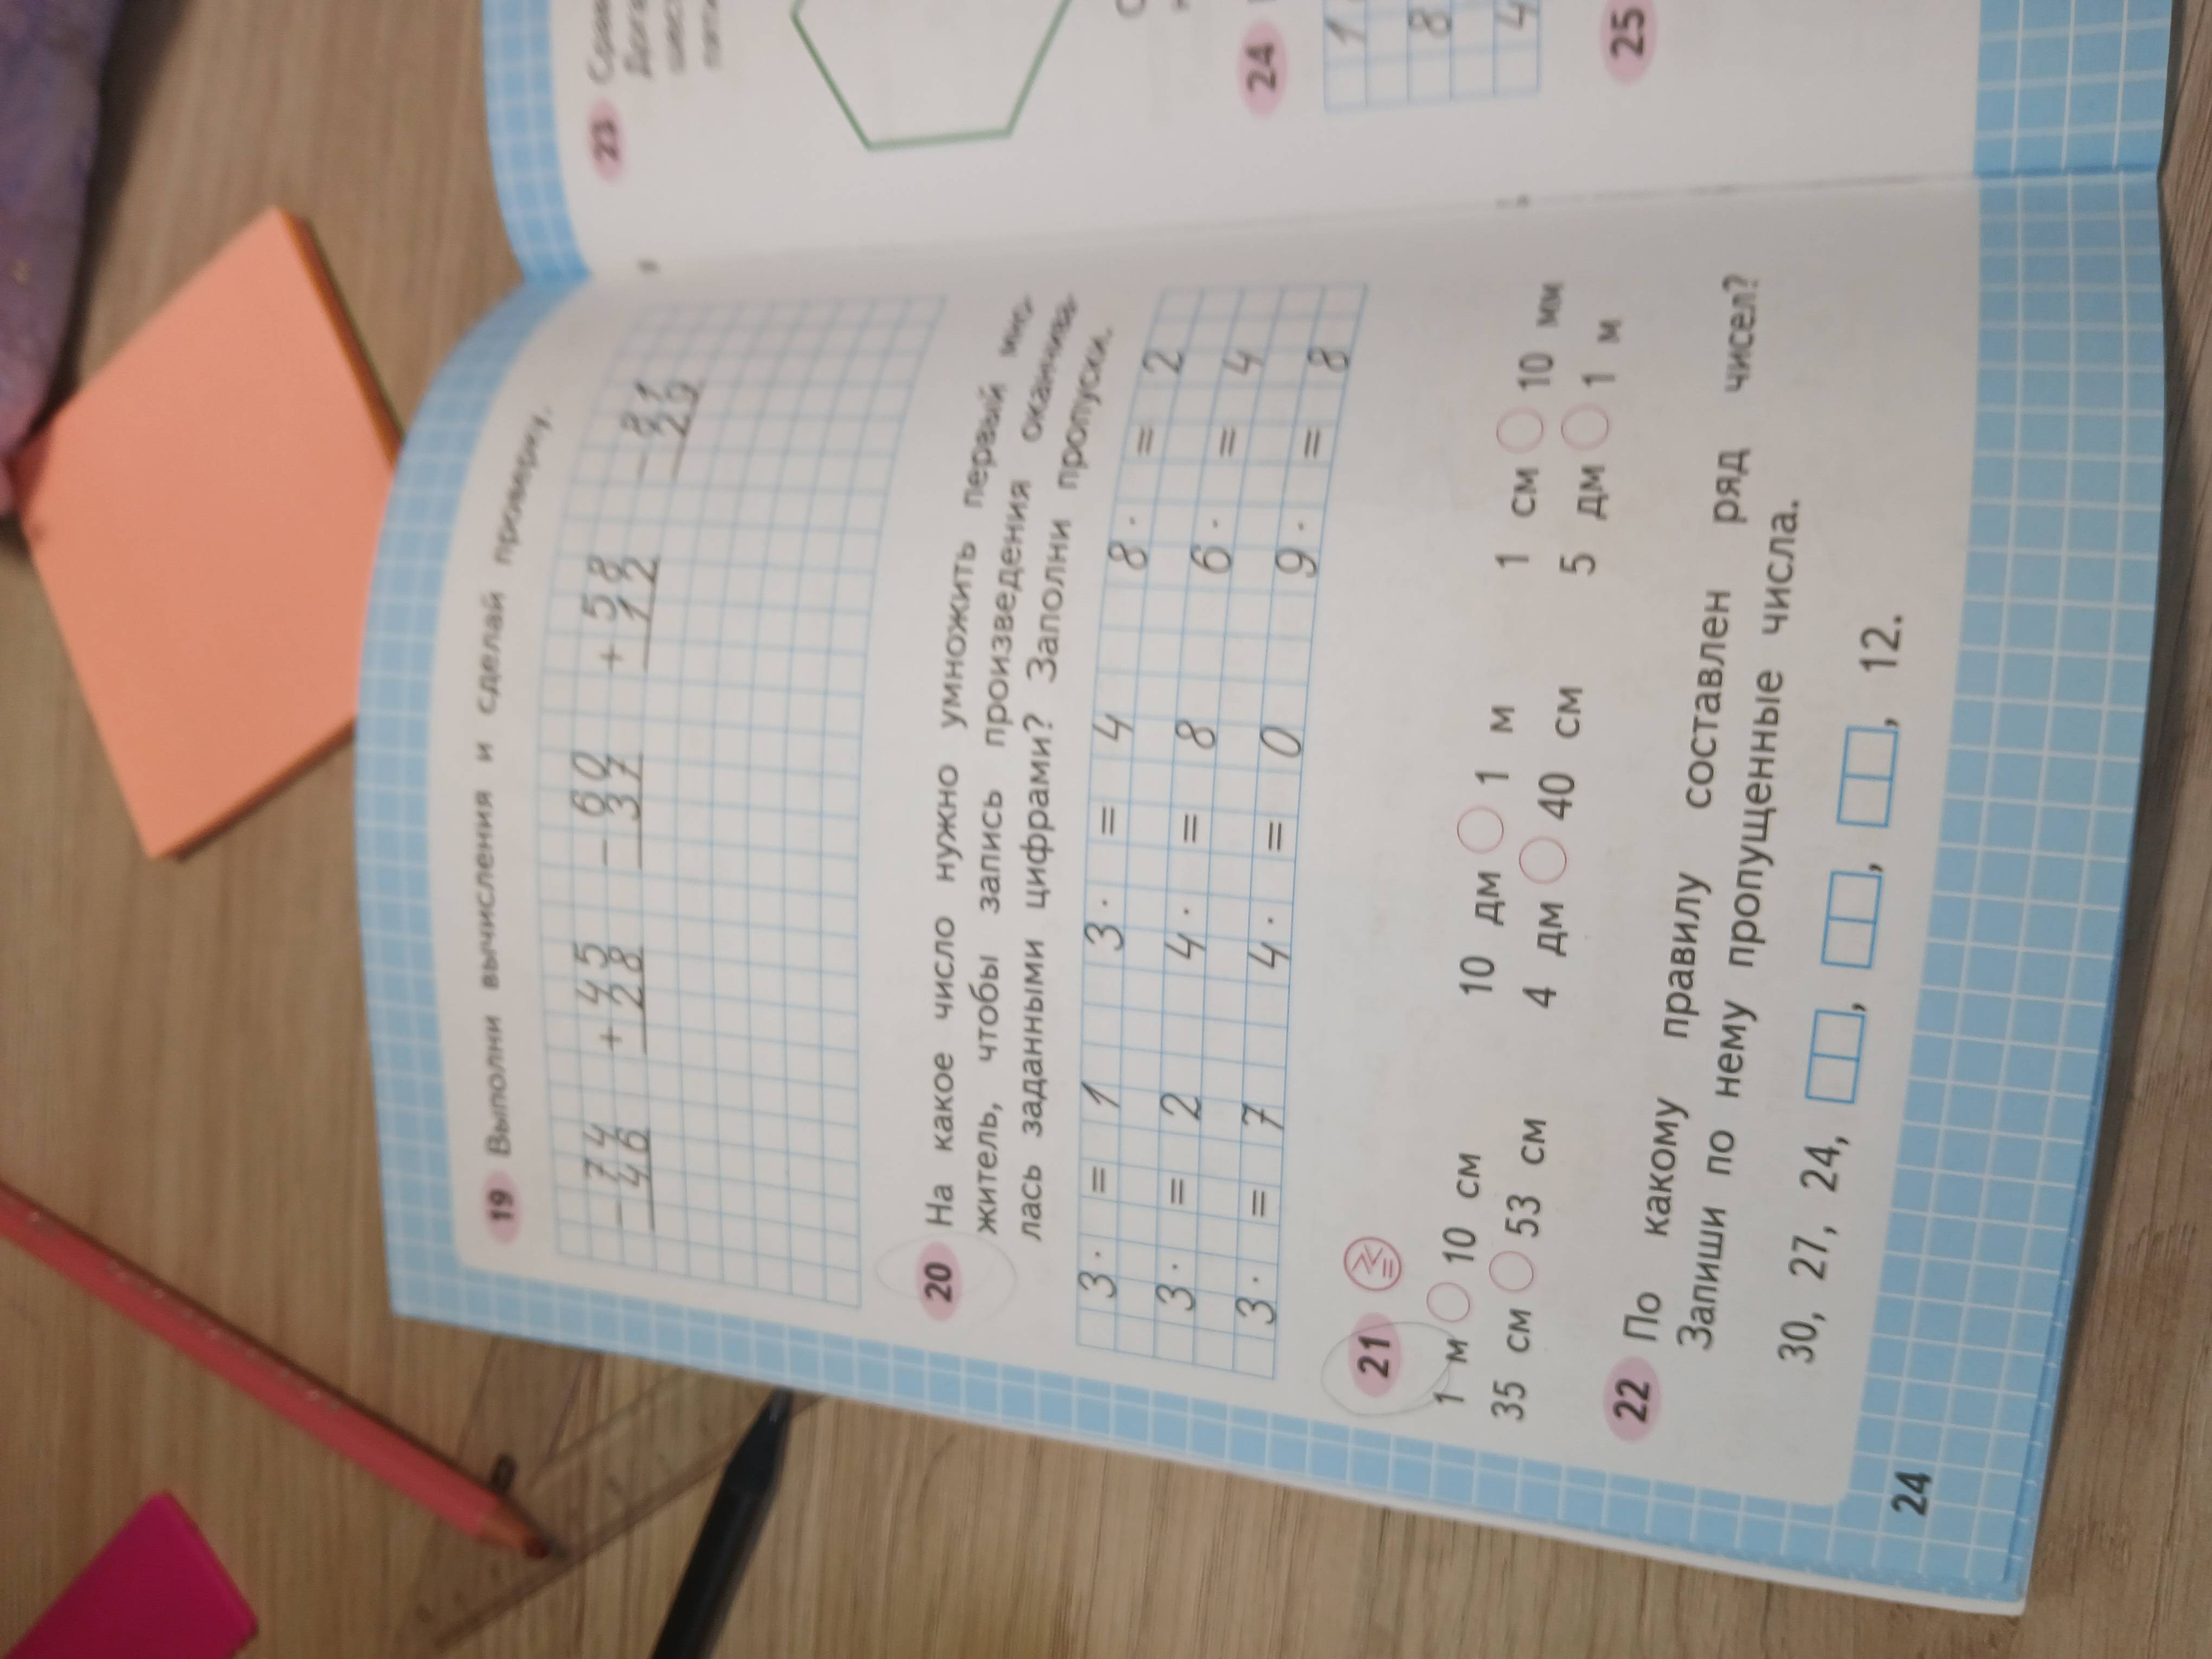 19 Выполни вычисления и сделай проверку.
- 74 + 45 - 60 + 58 - 81
46 28 37 12 29
20 На какое число нужно умножить первый мно-
житель, чтобы запись произведения оканчива-
лась заданными цифрами? Заполни пропуски.
3 · = 1 3 · = 4 8 · = 2
3 · = 2 4 · = 8 6 · = 4
3 · = 7 4 · = 0 9 · = 8
21
1 м 10 см 10 дм 1 м 1 см 10 мм
35 см 53 см 4 дм 40 см 5 дм 1 м
22 По какому правилу составлен ряд чисел?
Запиши по нему пропущенные числа.
30, 27, 24, , , , 12.
24
23
24
1
8
4
25